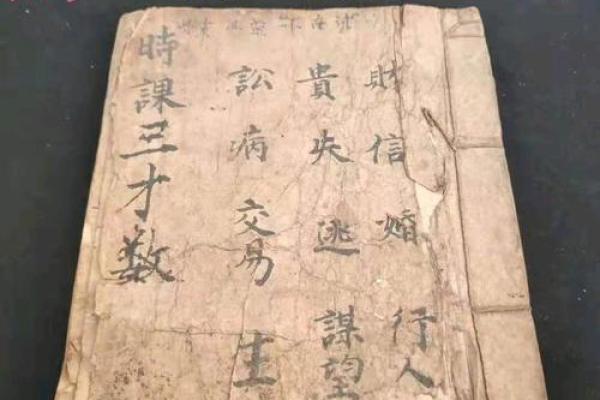 財信婚行人
貴失逃謀望
訟病交易生
時課三才數